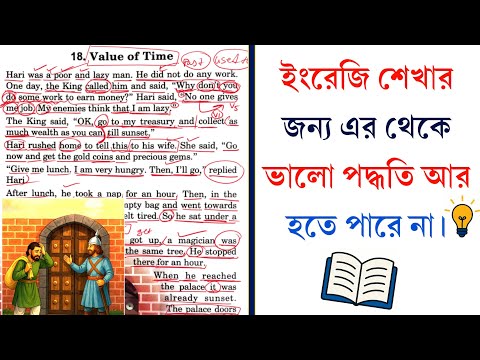 18. Value of Time
Hari was a poor and lazy man. He did not do any work.
One day, the King called him and said, "Why don't you
do some work to earn money?" Hari said, "No one gives
me job. My enemies think that I am lazy."
The King said, "OK, go to my treasury and collect as
much wealth as you can till sunset."
Hari rushed home to tell this to his wife. She said, "Go
now and get the gold coins and precious gems."
"Give me lunch. I am very hungry. Then, I'll go," replied
Hari.
After lunch, he took a nap for an hour. Then, in the
empty bag and went towards
felt tired. So he sat under a
got up, a magician was
the same tree. He stopped
there for an hour.
When he reached
the palace it was
already sunset.
The palace doors
ইংরেজি শেখার
জন্য এর থেকে
ভালো পদ্ধতি আর
হতে পারে না।